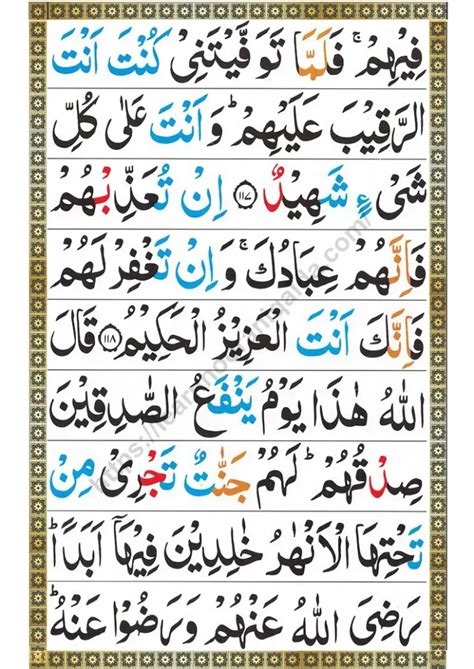 فِيْهِمْ ۚ فَلَمَّا تَوَفَّيْتَنِيْ كُنْتَ اَنْتَ
الرَّقِيْبَ عَلَيْهِمْ ؕ وَاَنْتَ عَلٰى كُلِّ
شَيْءٍ شَهِيْدٌ ﴿۱۱۷﴾ اِنْ تُعَذِّبْهُمْ
فَاِنَّهُمْ عِبَادُكَ ۚ وَاِنْ تَغْفِرْ لَهُمْ
فَاِنَّكَ اَنْتَ الْعَزِيْزُ الْحَكِيْمُ ﴿۱۱۸﴾ قَالَ
اللّٰهُ هٰذَا يَوْمُ يَنْفَعُ الصّٰدِقِيْنَ
صِدْقُهُمْ ؕ لَهُمْ جَنّٰتٌ تَجْرِيْ مِنْ
تَحْتِهَا الْاَنْهٰرُ خٰلِدِيْنَ فِيْهَاۤ اَبَدًا ؕ
رَضِيَ اللّٰهُ عَنْهُمْ وَرَضُوْا عَنْهُ ؕ